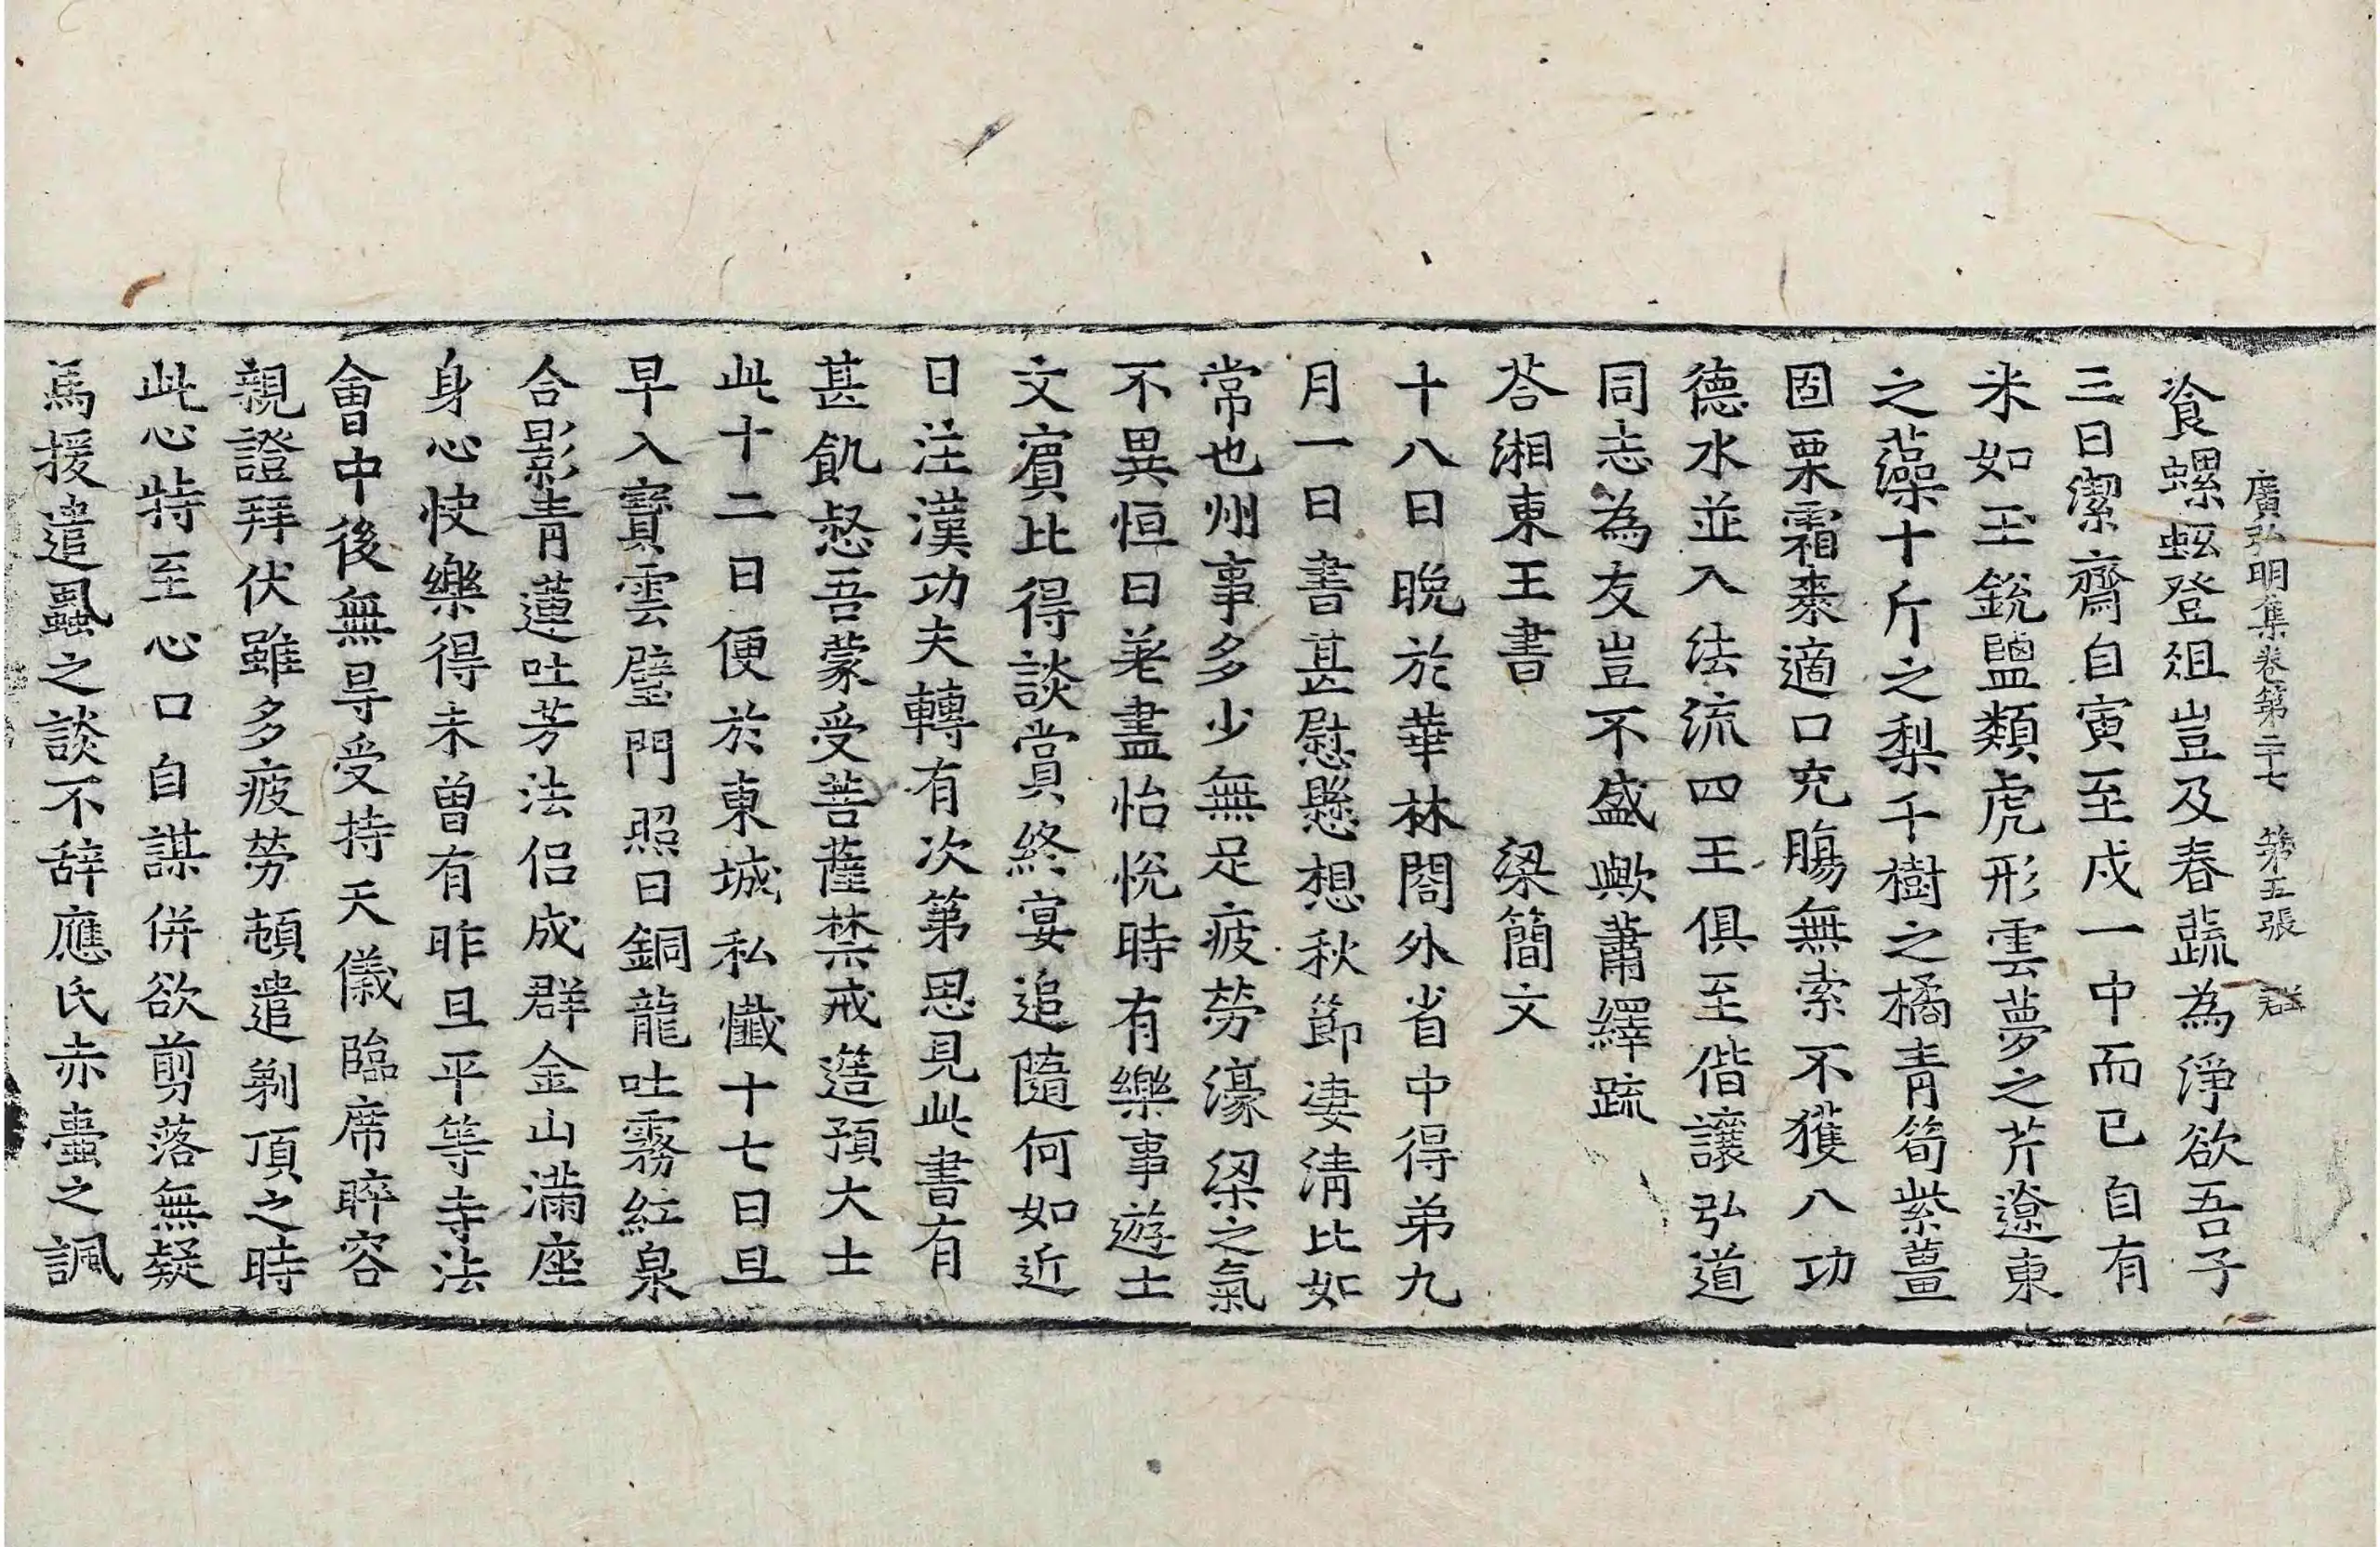 廣弘明集卷第二十七 第五張 群
飡螺蚳登俎豈及春蔬為淨欲吾子
三日潔齋自寅至戌一中而已自有
米如玉銳鹽類虎形雲夢之芹遼東
之藻十斤之梨千樹之橘青筍紫薑
固栗霜棗適口充腸無索不獲八功
德水並入法流四王俱至偕讓弘道
同志為友豈不盛歟蕭繹疏
荅湘東王書 梁簡文
十八日晩於華林閤外省中得弟九
月一日書甚慰懸想秋節凄清比如
常也州事多少無足疲勞濠梁之氣
不異恒日差盡怡悅時有樂事遊士
文賓比得談賞終宴追隨何如近
日注漢功夫轉有次第思見此書有
甚飢惄吾蒙受菩薩禁戒簉預大士
此十二日便於東城私懺十七日旦
早入寶雲璧門照日銅龍吐霧紅泉
合影青蓮吐芳法侣成群金山滿座
身心快樂得未曾有昨旦平等寺法
會中後無㝵受持天儀臨席睟容
親證拜伏雖多疲勞頓遣剃頂之時
此心特至心口自謀併欲剪落無疑
馬援遣蝨之談不辞應氏赤壷之諷